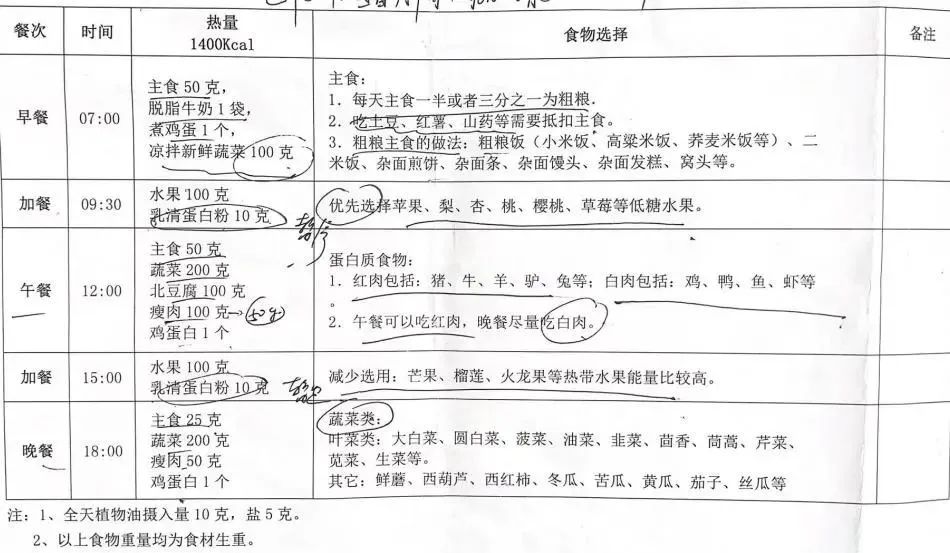 餐次
时间
热量
1400Kcal
食物选择
备注
早餐
07:00
主食 50 克,
脱脂牛奶 1 袋,
煮鸡蛋 1 个,
凉拌新鲜蔬菜 100 克
主食:
1. 每天主食一半或者三分之一为粗粮.
2. 吃土豆、红薯、山药等需要抵扣主食。
3. 粗粮主食的做法: 粗粮饭(小米饭、高粱米饭、荞麦米饭等)、二
米饭、杂面煎饼、杂面条、杂面馒头、杂面发糕、窝头等。
加餐
09:30
水果 100 克
乳清蛋白粉 10 克
优先选择苹果、梨、杏、桃、樱桃、草莓等低糖水果。
午餐
12:00
主食 50 克
蔬菜 200 克
北豆腐 100 克
瘦肉 100 克→50g
鸡蛋白 1 个
蛋白质食物:
1. 红肉包括: 猪、牛、羊、驴、兔等; 白肉包括: 鸡、鸭、鱼、虾等
。
2. 午餐可以吃红肉, 晚餐尽量吃白肉。
加餐
15:00
水果 100 克
乳清蛋白粉 10 克
减少选用: 芒果、榴莲、火龙果等热带水果能量比较高。
晚餐
18:00
主食 25 克
蔬菜 200 克
瘦肉 50 克
鸡蛋白 1 个
蔬菜类:
叶菜类: 大白菜、圆白菜、菠菜、油菜、韭菜、茴香、茼蒿、芹菜、
苋菜、生菜等。
其它: 鲜蘑、西葫芦、西红柿、冬瓜、苦瓜、黄瓜、茄子、丝瓜等
注: 1、全天植物油摄入量 10 克, 盐 5 克。
2、以上食物重量均为食材生重。